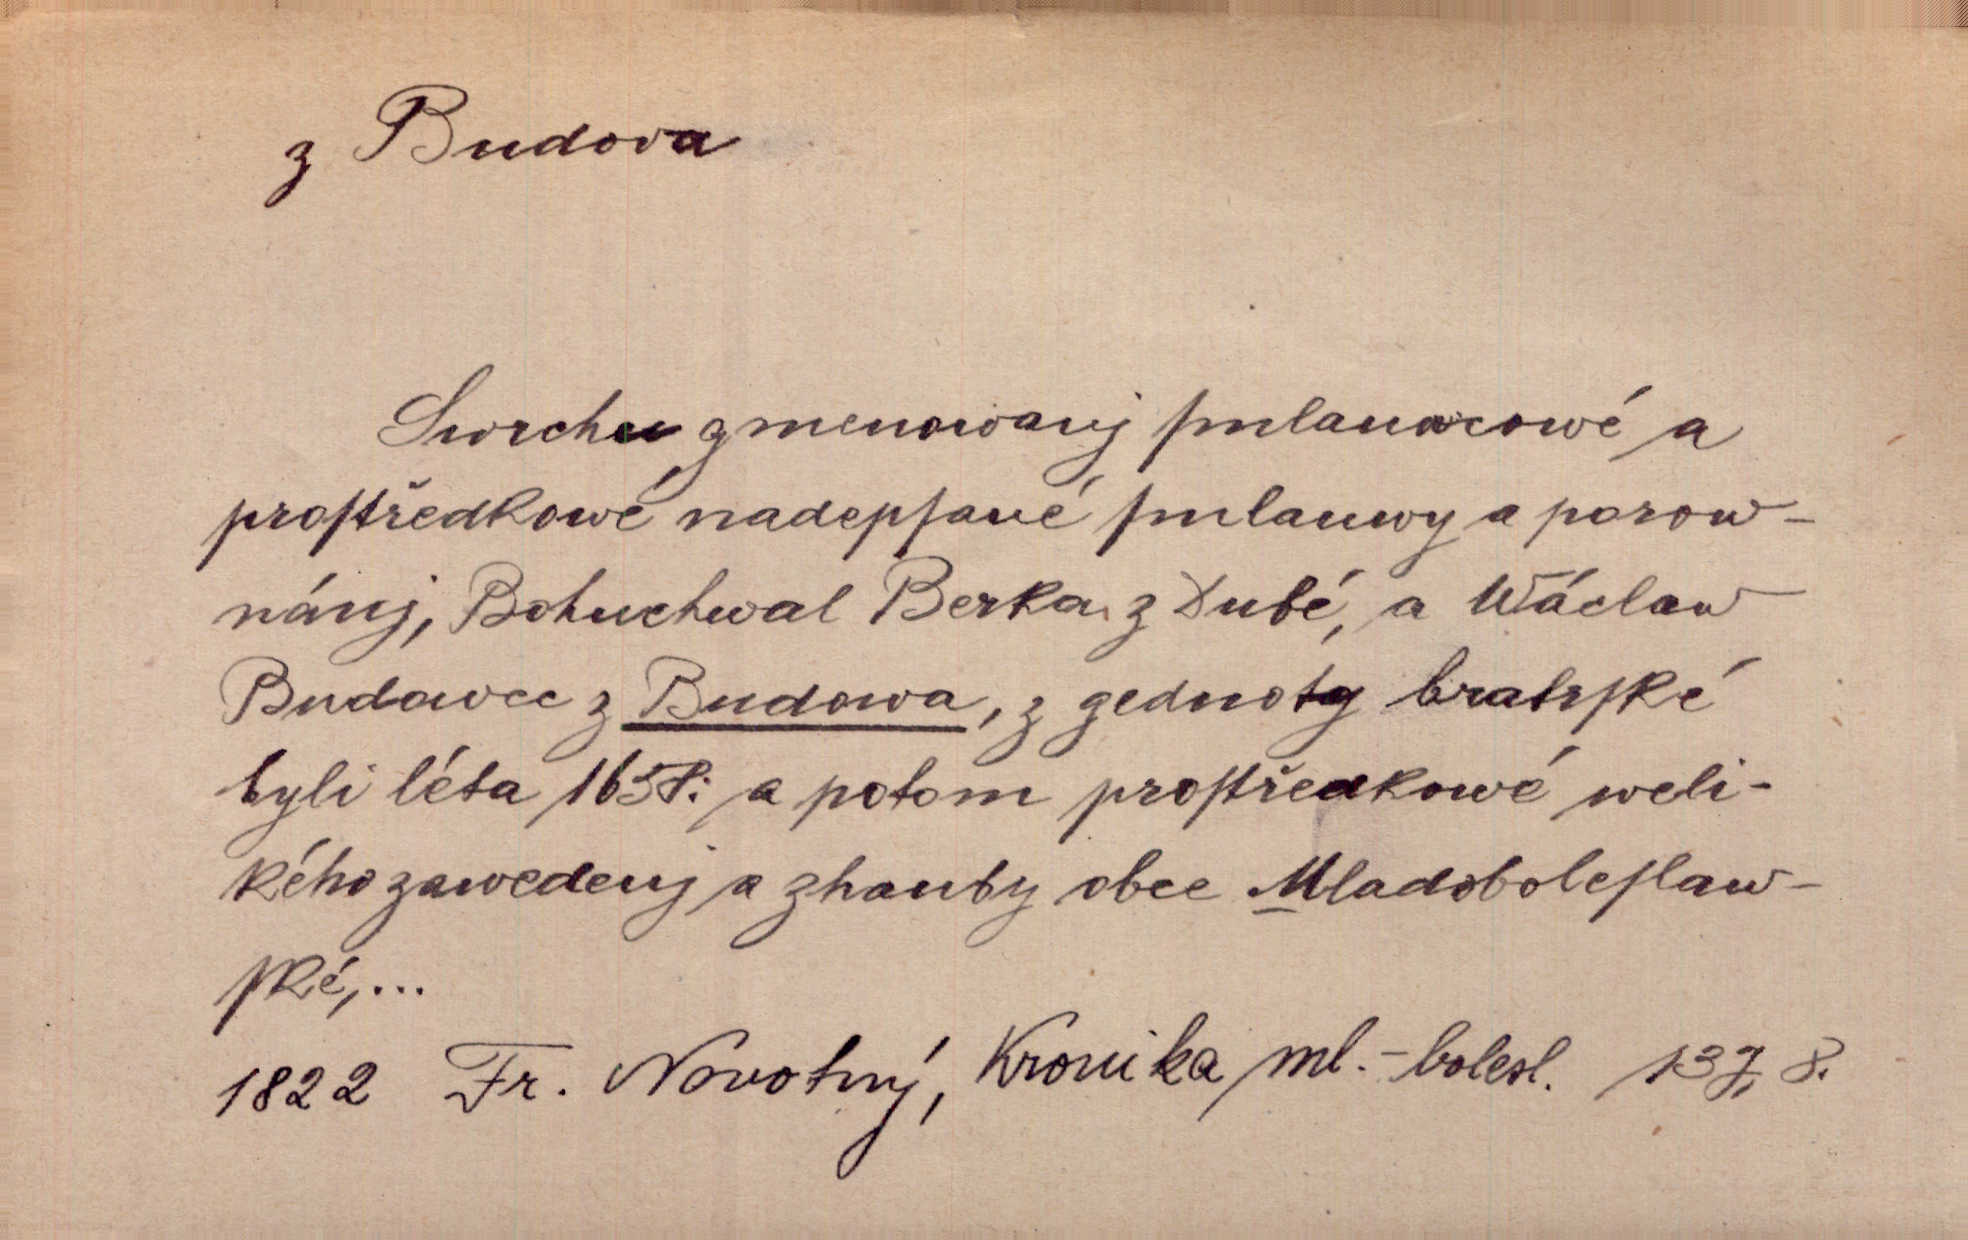 z Budova
Swrchu gmenowanj ſmlauwcowé a
proſtředkowé nadepſané ſmlauwy a porow-
nánj, Bohuchwal Berka z Dubé, a Wáclaw
Budowec z Budowa, z gednoty bratrſké
byli léta a potom proſtředkowé weli-
kého zawedenj a zhauby obce Mladoboleſlaw-
ſké,...
1822 Fr. Novotný, Kronika ml.-bolesl. 137, 8.